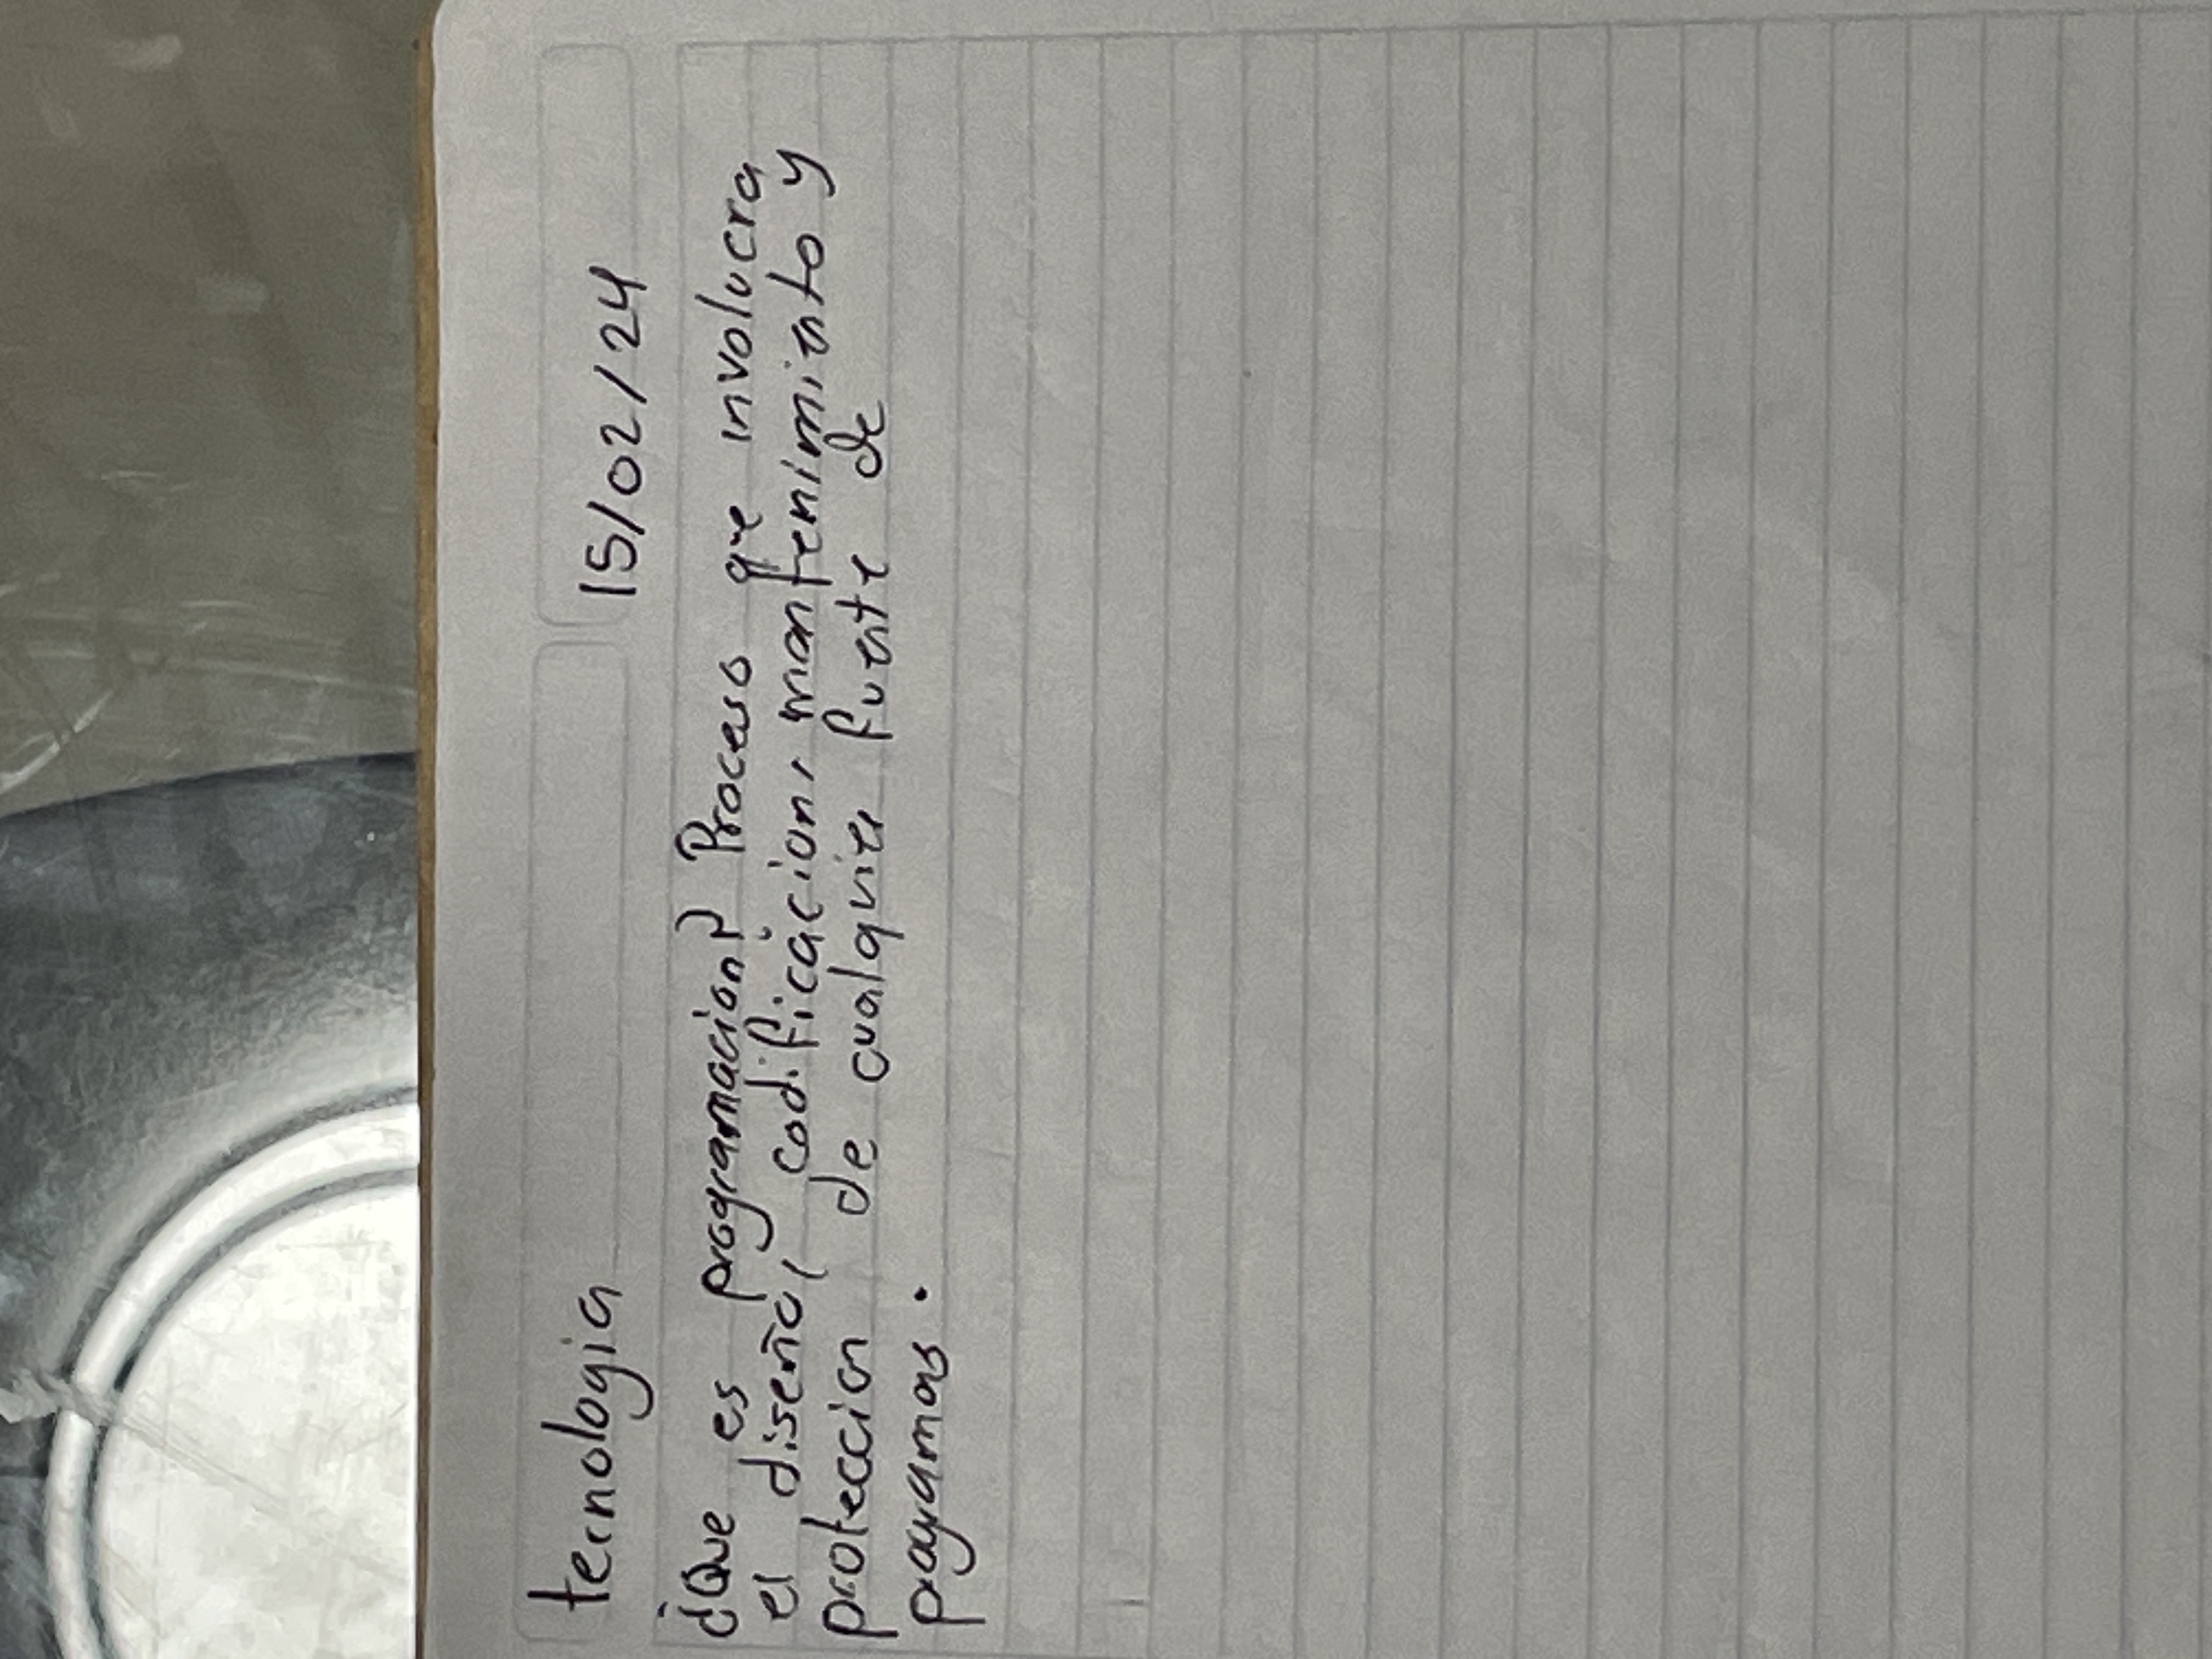 tecnologia
15/02/24
¿Que es programacion? Proceso que involucra
el diseño, codificacion, mantenimiento y
proteccion de cualquier fuente de
programas.